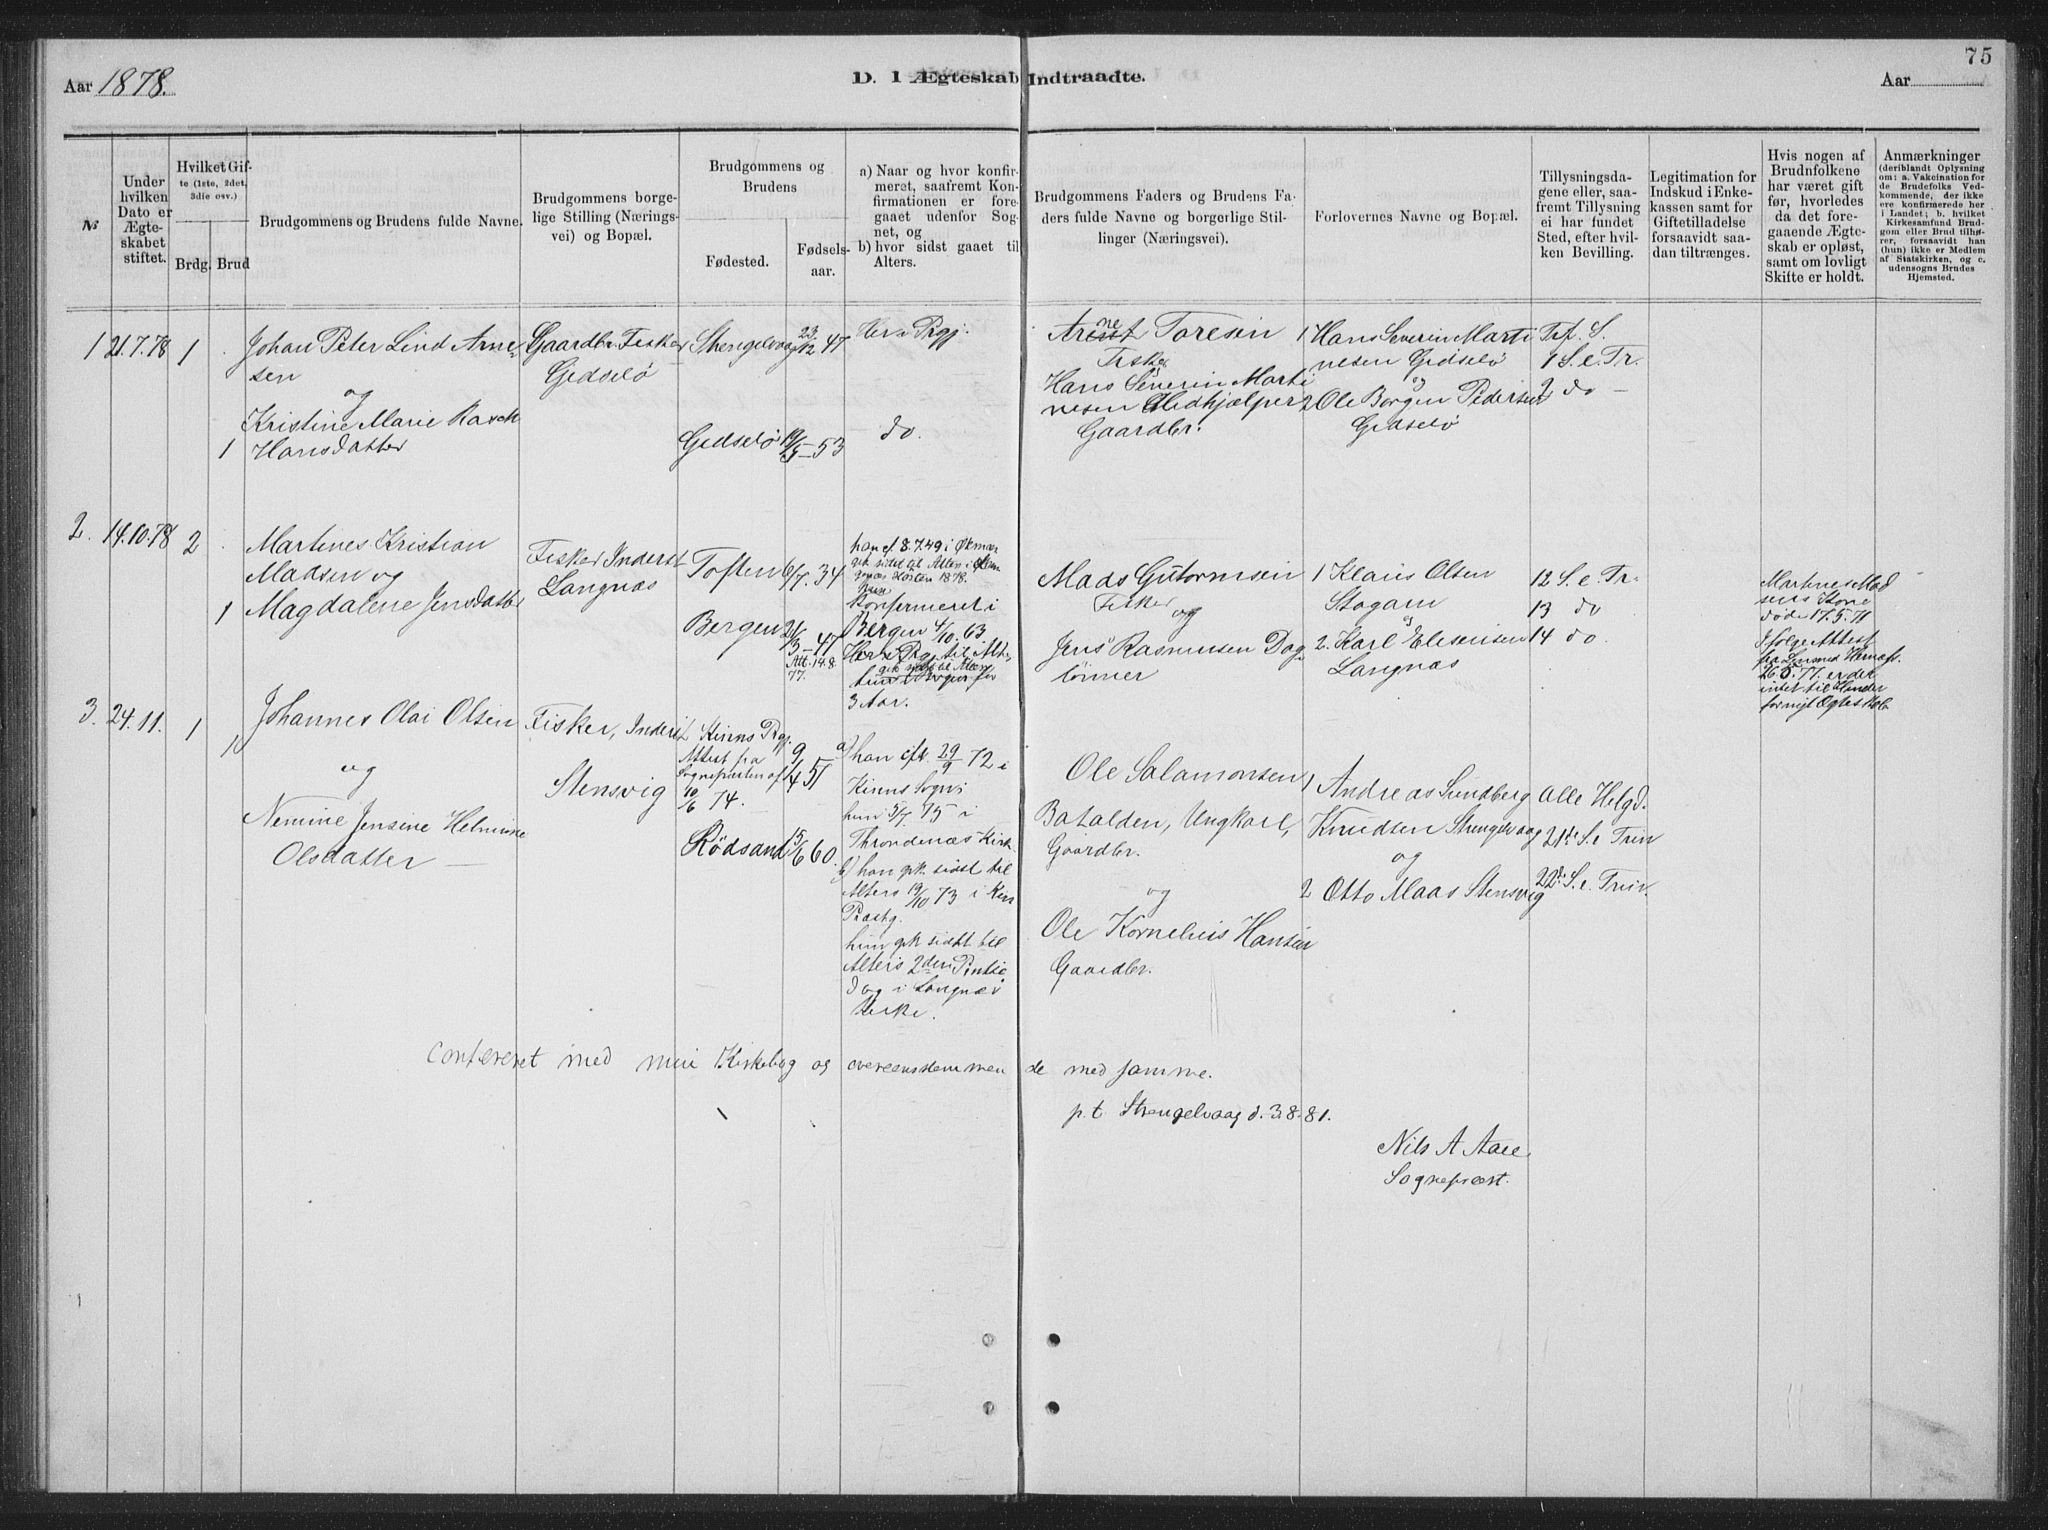 75
Aar 1878.
D. I Ægteskab Indtraadte.
Aar
№
Under hvilken Dato er Ægteskabet stiftet.
Hvilket Gifte (1ste, 2det, 3die osv.)
Brdg. Brud
Brudgommens og Brudens fulde Navne.
Brudgommens borgelige Stilling (Næringsvei) og Bopæl.
Brudgommens og Brudens
Fødested.
Fødselsaar.
a) Naar og hvor konfirmeret, saafremt Konfirmationen er foregaaet udenfor Sognet, og
b) hvor sidst gaaet til Alters.
Brudgommens Faders og Brudens Faders fulde Navne og borgerlige Stillinger (Næringsvei).
Forlovernes Navne og Bopæl.
Tillysningsdagene eller, saafremt Tillysning ei har fundet Sted, efter hvilken Bevilling.
Legitimation for Indskud i Enkekassen samt for Giftetilladelse forsaavidt saadan tiltrænges.
Hvis nogen af Brudnfolkene har været gift før, hvorledes da det foregaaende Ægteskab er opløst, samt om lovligt Skifte er holdt.
Anmærkninger
(deriblandt Oplysning om: a. Vakcination for de Brudefolks Vedkommende, der ikke ere konfirmerede her i Landet; b. hvilket Kirkesamfund Brudgom eller Brud tilhører, forsaavidt han (hun) ikke er Medlem af Statskirken, og c. udensogns Brudes Hjemsted.
1 21.7.78 1
Johan Peter Lind Arne-
sen
og
Kristine Marie Rasch
1 Hansdatter
Gaardbr. Fisker
Gidselø
Strengelvaag 23/12 47
Gidselø 19/3 – 53
Her i Prgj.
do.
Arne Toresen
Fisker
og
Hans Severin Marti
nesen Medhjælper
Gaardbr.
1 Hans Severin Marti
nesen Gidselø
og
2 Ole Borgen Pedersen
Gidselø
Tref. S.
1 S. e. Tr.
2 do –
2. 14.10.78 2
Martines Kristian
Madsen og
1 Magdalene Jensdatter
Fisker Inderst
Langnæs
Toften 6/7. 34
Bergen 21/3 – 47
Att. 14.8.
77.
han cf. 8.7.49 i Øksnæs
gik sidst til Alters i
Høsten 1878.
Konfermeret i
Bergen 4/10. 63
gik sidst til Alters
3 Aar.
Mads Gutormsen
Fisker
og
Jens Rasmussen Dag
lønner
1 Klaus Olsen
Stogam
og
2. Karl Elesensen
Langnæs
12 S. e. Tr.
13 do
14 do.
Martines Mad
sens Kone
døde 17.5.71
Ifølge Attest
fra Lensmd.
26.5.77. er der
intet til Hinder
for nyt Ægteskab
3. 24.11. 1
1
Johannes Olai Olsen
og
Nemine Jensine Helmine
Olsdatter –
Fisker, Inderst
Stensvig
Kinns Prgj.
Attest fra
Sognepresten af
10/6 74.
9/4 51
Rödsand 15/6 60.
a) han cfr. 29/9 72 i
Kinns Sogn;
hun 5/7. 75 i
Throndenæs Kirk.
b) han gik sidst til
Alters 19/10 73 i Kin
Præstg.
hun gik sidst til
Alters 2den Pintse
dag i Langnæs
Kirke.
Ole Salamonsen
Batalden, Ungkarl,
Gaardbr.
og
Ole Kornelius Hansen
Gaardbr.
1 Andreas Sundberg
Knudsen Strengelvaag
og
2 Otto Maas Stensvig
Alle Helgd.
21de S. e Trin
22de S. e. Trin.
confereret med min Kirkebog og overensstemmen de med samme.
p. t. Strengelvaag d. 3.8.81.
Nils A Aall
Sogneprest.